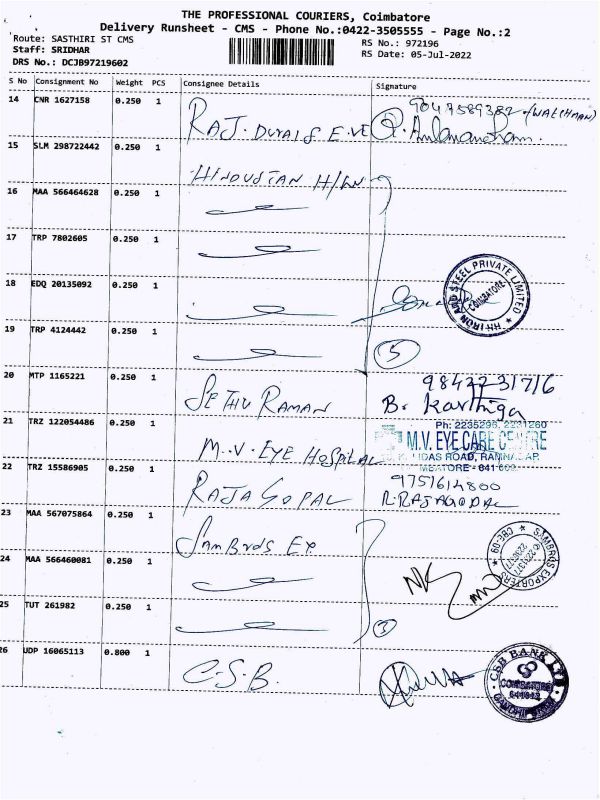 THE PROFESSIONAL COURIERS, Coimbatore
Delivery Runsheet - CMS - Phone No.:0422-3505555 - Page No.:2
Route: SASTHIRI ST CMS
RS No.: 972196
Staff: SRIDHAR
RS Date: 05-Jul-2022
DRS No.: DCJB97219602
S No Consignment No Weight PCS Consignee Details Signature
14 CNR 1627158 0.250 1 RAJ. DURAIS EYE 9047589382 (WATCHMAN)
15 SLM 298722442 0.250 1 HINDUSTAN
16 MAA 566464628 0.250 1
17 TRP 7802605 0.250 1
18 EDQ 20135092 0.250 1
HH IRON AND STEEL PRIVATE LIMITED
COIMBATORE
19 TRP 4124442 0.250 1 5
20 MTP 1165221 0.250 1 SETHU RAMAN 9842231716
B. Karthiga
21 TRZ 122054486 0.250 1 M.V. EYE HOSPITAL
Ph: 2235296, 2231260
M.V. EYE CARE CENTRE
22 TRZ 15586905 0.250 1 RAJA GOPAL 9751614800
R. RAJAGOPAL
23 MAA 567075864 0.250 1 SAMBROS EX
SAMBROS EXPORTERS CBE-09
24 MAA 566460081 0.250 1
25 TUT 261982 0.250 1 3
26 UDP 16065113 0.800 1 C.S.B.
CSB BANK LTD
COIMBATORE